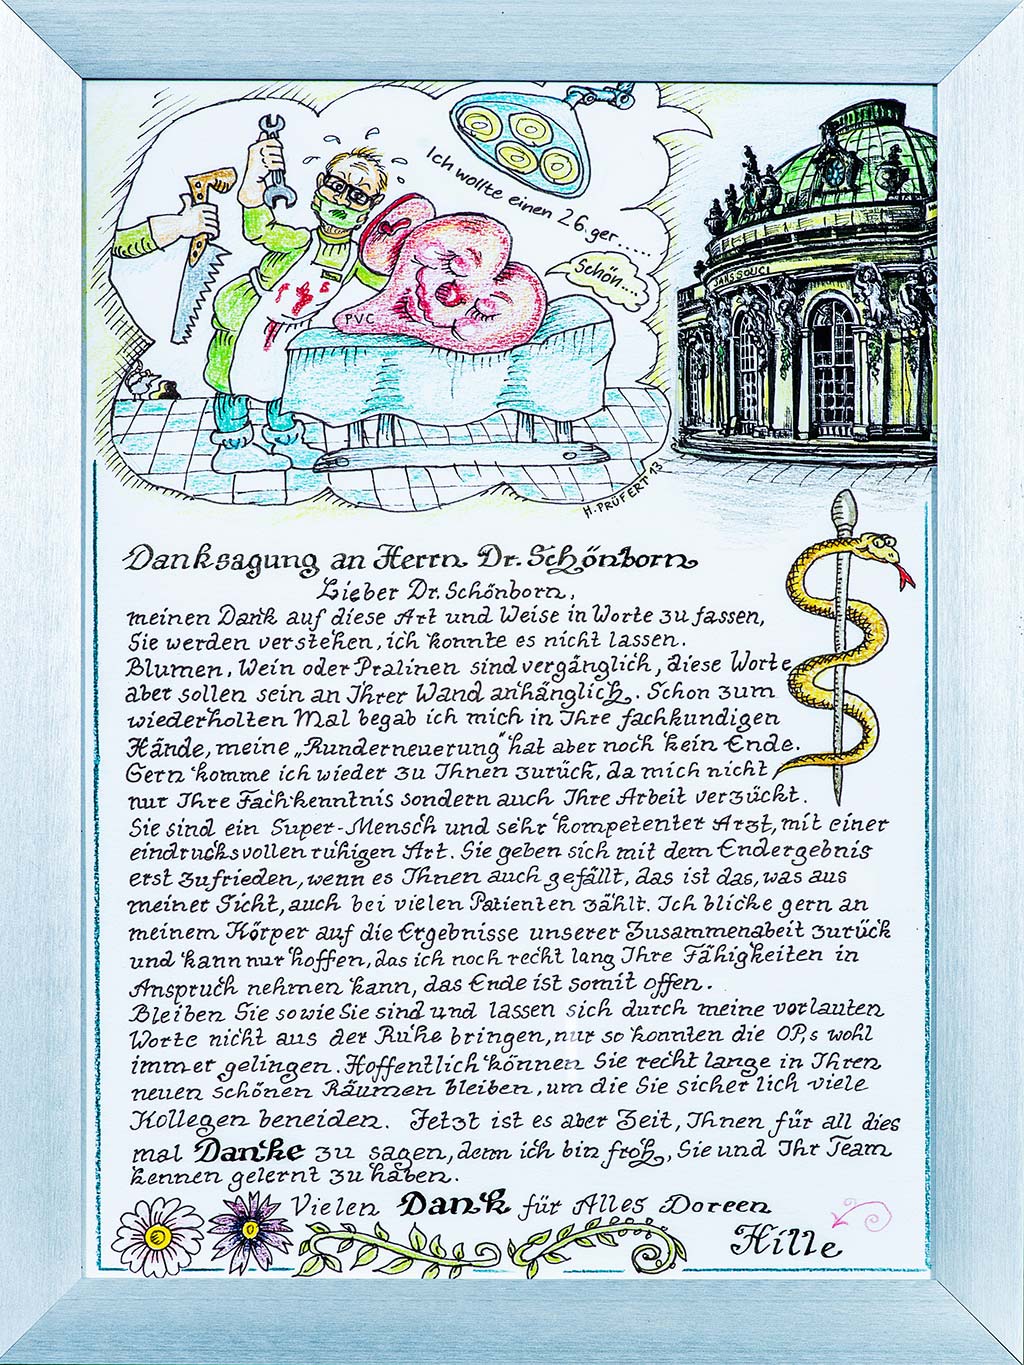 Ich wollte einen 26.ger.....
Schön....
PVC
SANSSOUCI
H. PRÜFERT 13
Danksagung an Herrn Dr. Schönborn
Lieber Dr. Schönborn,
meinen Dank auf diese Art und Weise in Worte zu fassen,
Sie werden verstehen, ich konnte es nicht lassen.
Blumen, Wein oder Pralinen sind vergänglich, diese Worte
aber sollen sein an Ihrer Wand anhänglich. Schon zum
wiederholten Mal begab ich mich in Ihre fachkundigen
Hände, meine „Runderneuerung" hat aber noch kein Ende.
Gern komme ich wieder zu Ihnen zurück, da mich nicht
nur Ihre Fachkenntnis sondern auch Ihre Arbeit verzückt.
Sie sind ein Super-Mensch und sehr kompetenter Arzt, mit einer
eindrucksvollen ruhigen Art. Sie geben sich mit dem Endergebnis
erst zufrieden, wenn es Ihnen auch gefällt, das ist das, was aus
meiner Sicht, auch bei vielen Patienten zählt. Ich blicke gern an
meinem Körper auf die Ergebnisse unserer Zusammenabeit zurück
und kann nur hoffen, das ich noch recht lang Ihre Fähigkeiten in
Anspruch nehmen kann, das Ende ist somit offen.
Bleiben Sie so wie Sie sind und lassen sich durch meine vorlauten
Worte nicht aus der Ruhe bringen, nur so konnten die OP,s wohl
immer gelingen. Hoffentlich können Sie recht lange in Ihren
neuen schönen Räumen bleiben, um die Sie sicherlich viele
Kollegen beneiden. Jetzt ist es aber Zeit, Ihnen für all dies
mal Danke zu sagen, denn ich bin froh, Sie und Ihr Team
kennen gelernt zu haben.
Vielen Dank für Alles Doreen
Hille